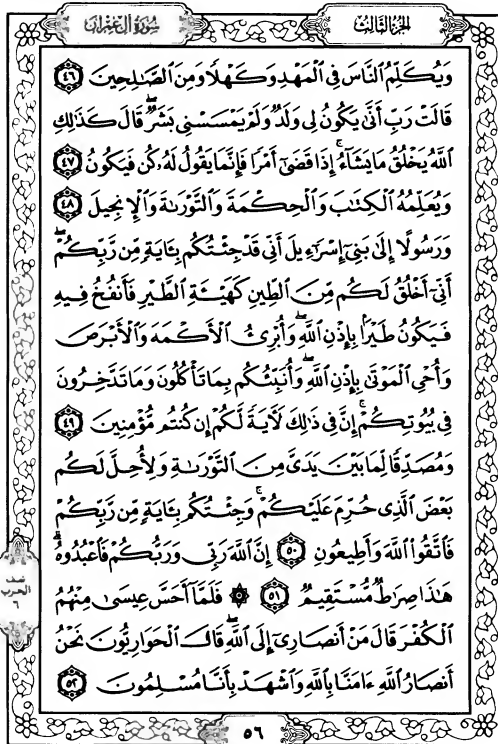 سُورَةُ آلِ عِمْرَان
الجُزْءُ الثَّالِث
وَيُكَلِّمُ ٱلنَّاسَ فِى ٱلْمَهْدِ وَكَهْلًا وَمِنَ ٱلصَّٰلِحِينَ ٤٦
قَالَتْ رَبِّ أَنَّىٰ يَكُونُ لِى وَلَدٌ وَلَمْ يَمْسَسْنِى بَشَرٌۖ قَالَ كَذَٰلِكِ
ٱللَّهُ يَخْلُقُ مَا يَشَآءُۚ إِذَا قَضَىٰٓ أَمْرًا فَإِنَّمَا يَقُولُ لَهُۥ كُن فَيَكُونُ ٤٧
وَيُعَلِّمُهُ ٱلْكِتَٰبَ وَٱلْحِكْمَةَ وَٱلتَّوْرَىٰةَ وَٱلْإِنجِيلَ ٤٨
وَرَسُولًا إِلَىٰ بَنِىٓ إِسْرَٰٓءِيلَ أَنِّى قَدْ جِئْتُكُم بِـَٔايَةٍ مِّن رَّبِّكُمْۖ
أَنِّىٓ أَخْلُقُ لَكُم مِّنَ ٱلطِّينِ كَهَيْـَٔةِ ٱلطَّيْرِ فَأَنفُخُ فِيهِ
فَيَكُونُ طَيْرًۢا بِإِذْنِ ٱللَّهِۖ وَأُبْرِئُ ٱلْأَكْمَهَ وَٱلْأَبْرَصَ
وَأُحْىِ ٱلْمَوْتَىٰ بِإِذْنِ ٱللَّهِۖ وَأُنَبِّئُكُم بِمَا تَأْكُلُونَ وَمَا تَدَّخِرُونَ
فِى بُيُوتِكُمْۚ إِنَّ فِى ذَٰلِكَ لَـَٔايَةً لَّكُمْ إِن كُنتُم مُّؤْمِنِينَ ٤٩
وَمُصَدِّقًا لِّمَا بَيْنَ يَدَىَّ مِنَ ٱلتَّوْرَىٰةِ وَلِأُحِلَّ لَكُم
بَعْضَ ٱلَّذِى حُرِّمَ عَلَيْكُمْۚ وَجِئْتُكُم بِـَٔايَةٍ مِّن رَّبِّكُمْ
فَٱتَّقُوا۟ ٱللَّهَ وَأَطِيعُونِ ٥٠ إِنَّ ٱللَّهَ رَبِّى وَرَبُّكُمْ فَٱعْبُدُوهُۗ
هَٰذَا صِرَٰطٌ مُّسْتَقِيمٌ ٥١ ۞ فَلَمَّآ أَحَسَّ عِيسَىٰ مِنْهُمُ
ٱلْكُفْرَ قَالَ مَنْ أَنصَارِىٓ إِلَى ٱللَّهِۖ قَالَ ٱلْحَوَارِيُّونَ نَحْنُ
أَنصَارُ ٱللَّهِ ءَامَنَّا بِٱللَّهِ وَٱشْهَدْ بِأَنَّا مُسْلِمُونَ ٥٢
نصف
الحزب
٦
٥٦